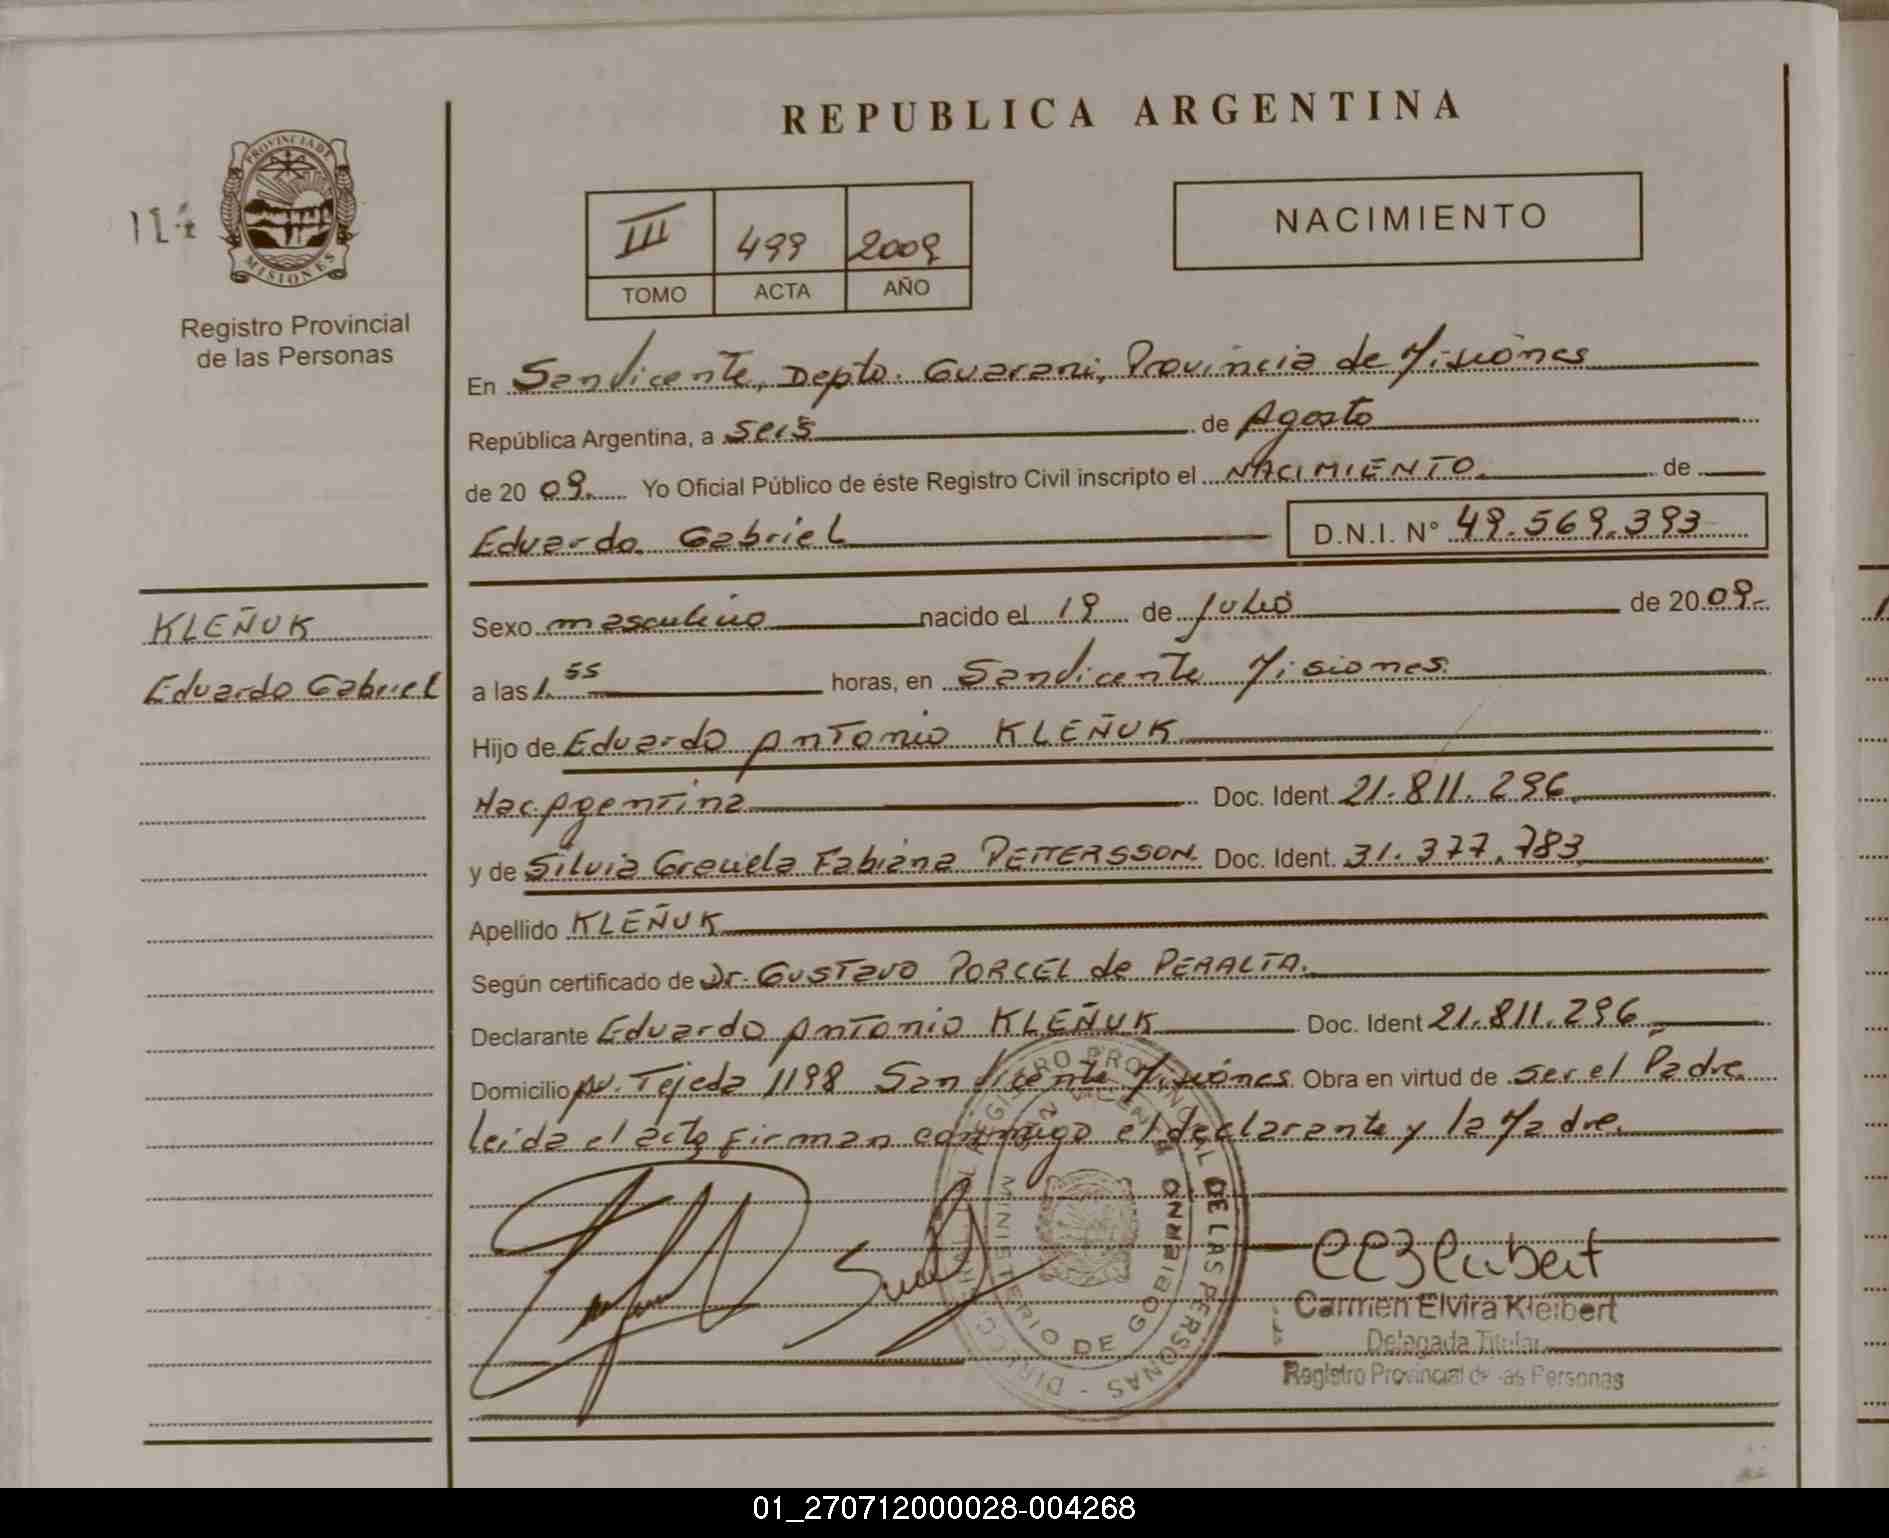 REPUBLICA ARGENTINA
PROVINCIA DE MISIONES
Registro Provincial
de las Personas
III 499 2009
TOMO ACTA AÑO
NACIMIENTO
En San Vicente, Depto. Guarani, Provincia de Misiones
República Argentina, a seis de Agosto
de 20 09. Yo Oficial Público de éste Registro Civil inscripto el NACIMIENTO. de
Eduardo Gabriel D.N.I. N° 49.569.393
KLEÑUK
Eduardo Gabriel
Sexo masculino nacido el 19 de Julio de 20 09.-
a las 1.55 horas, en San Vicente Misiones.
Hijo de Eduardo Antonio KLEÑUK
Nac. Agentina Doc. Ident. 21.811.296
y de Silvia Graciela Fabiana PETTERSSON. Doc. Ident. 31.377.783
Apellido KLEÑUK
Según certificado de Dr. GUSTAVO PORCEL de PERALTA.
Declarante Eduardo Antonio KLEÑUK Doc. Ident 21.811.296
Domicilio Av. Tejeda 1198 San Vicente Misiones. Obra en virtud de ser el Padre
leida el acta firman conmigo el declarante y la Madre.
REGISTRO PROVINCIAL DE LAS PERSONAS
SAN VICENTE
MINISTERIO DE GOBIERNO
Carmen Elvira Kleibert
Delegada Titular
Registro Provincial de las Personas
01_270712000028-004268